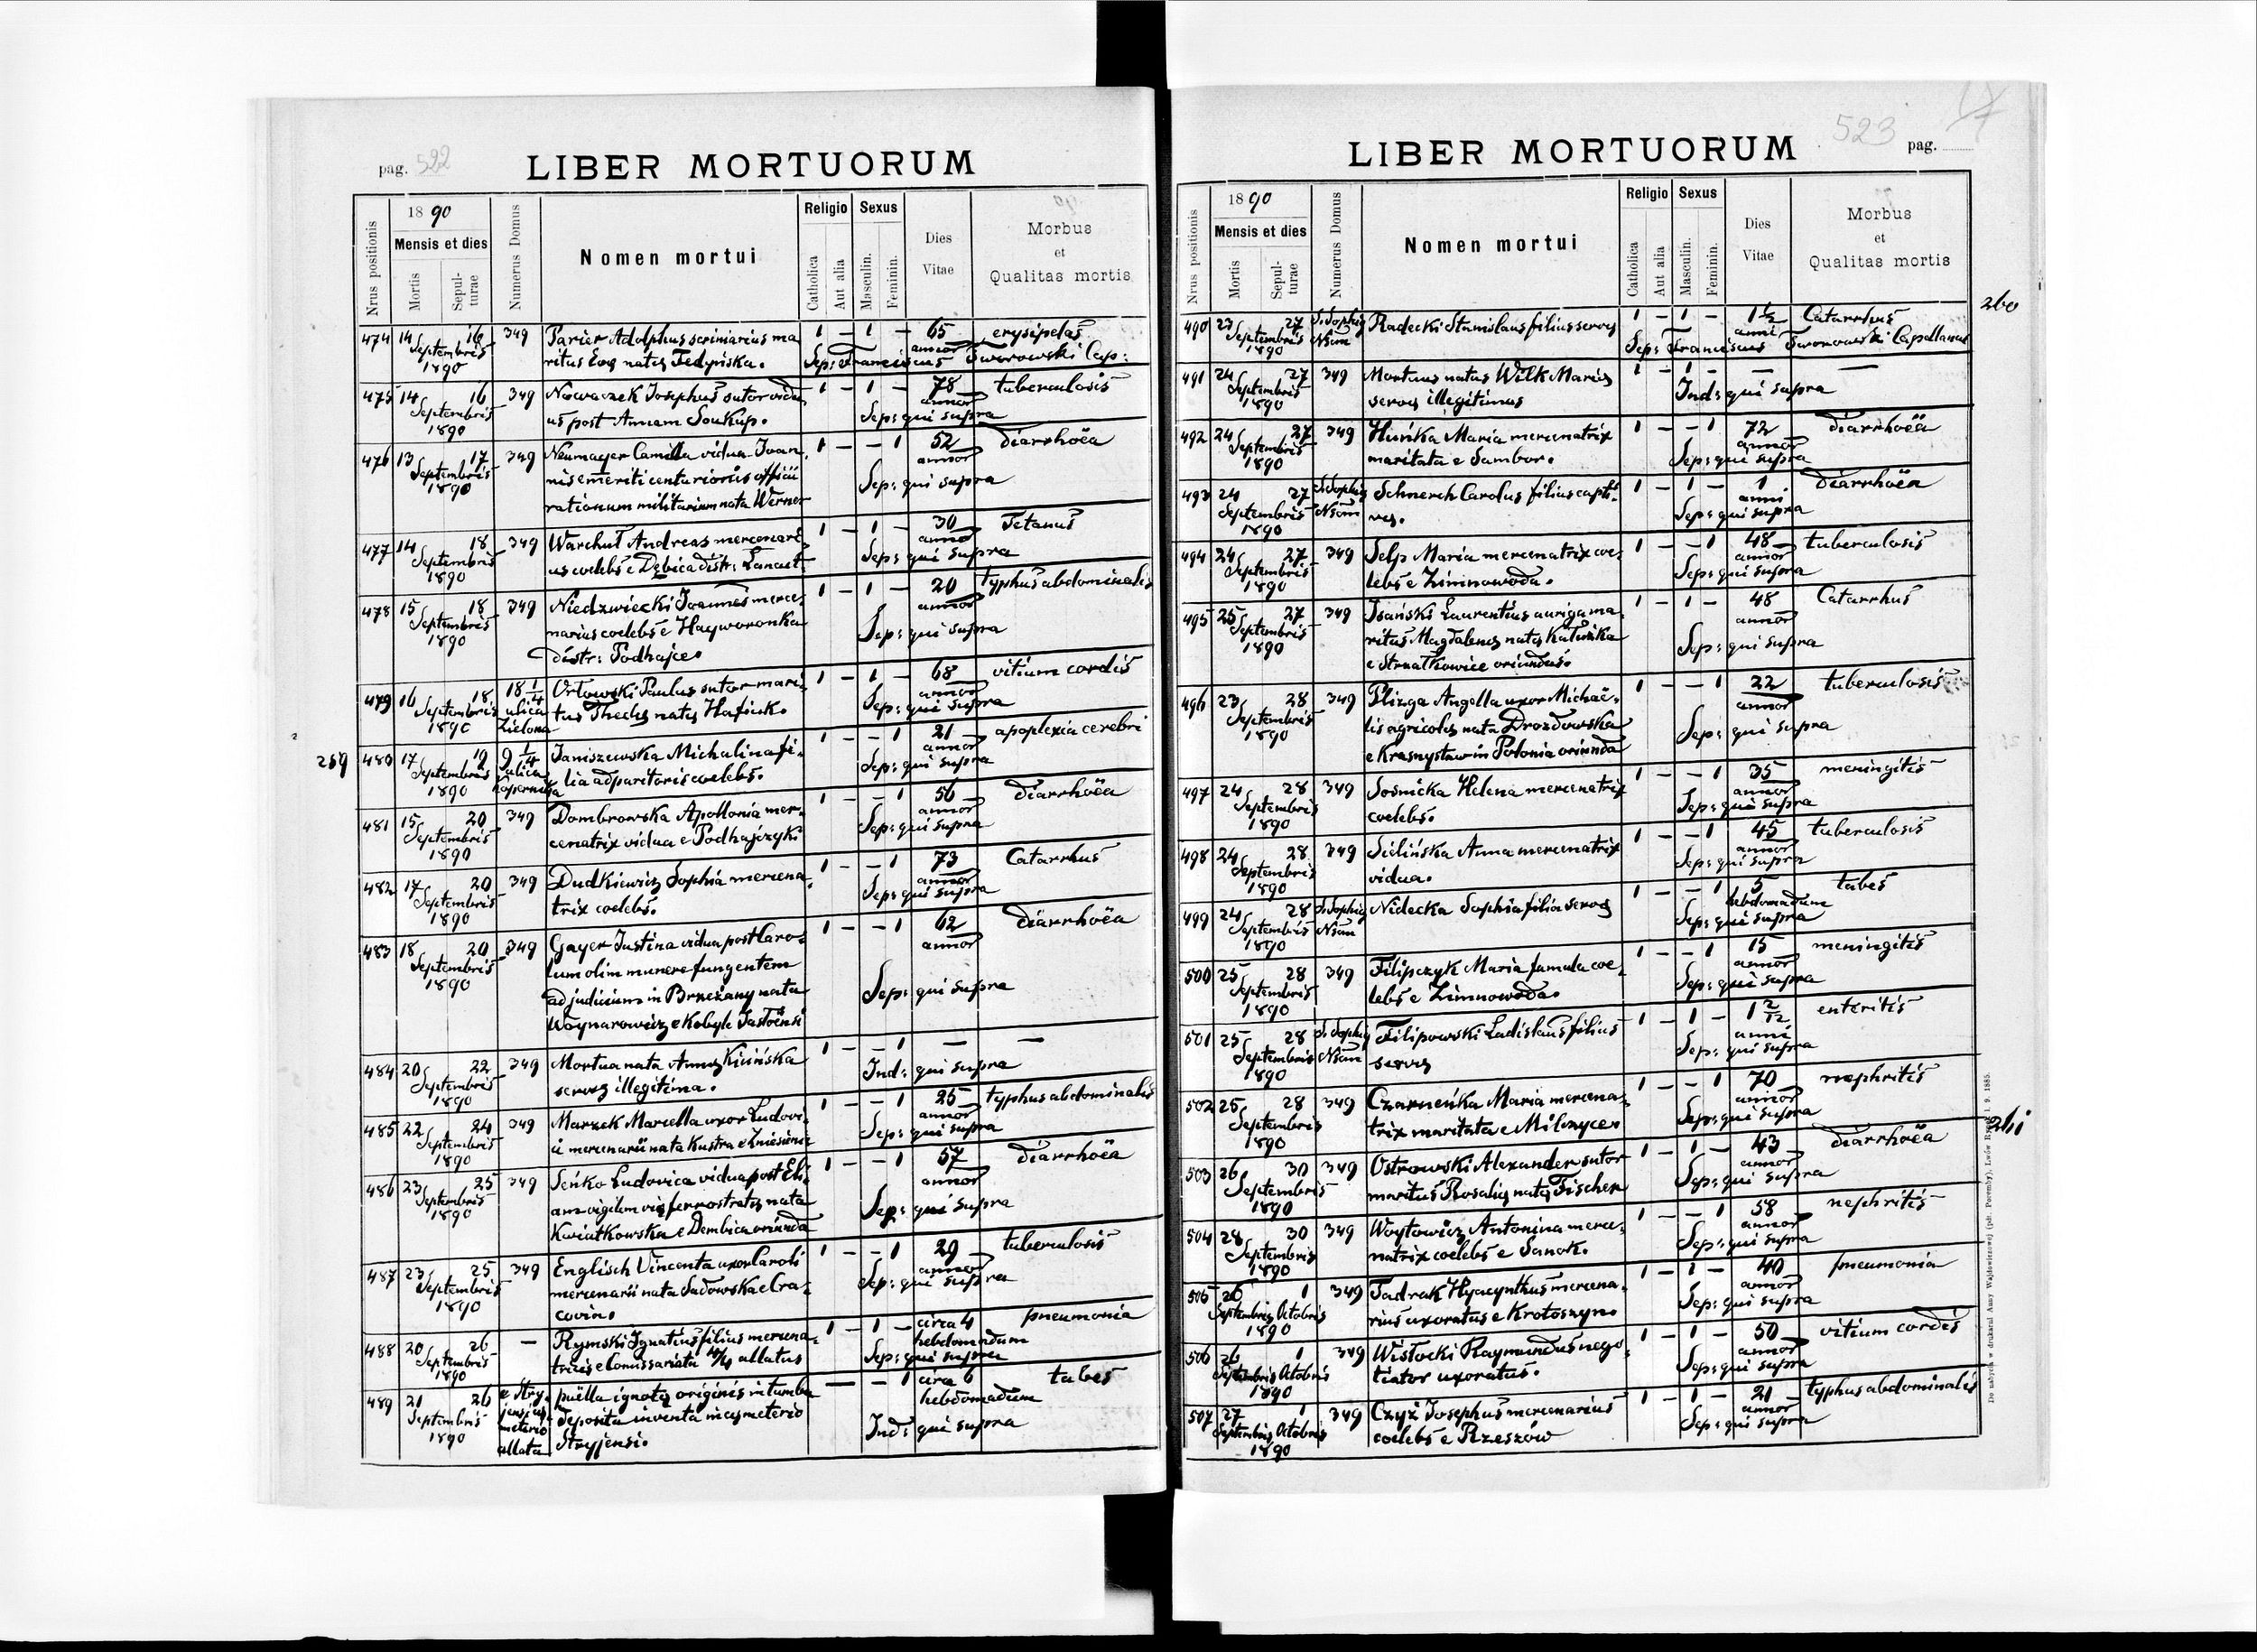 pag. 522
LIBER MORTUORUM
Nrus positionis
18 90
Mensis et dies
Mortis
Sepul-
turae
Numerus Domus
Nomen mortui
Religio
Catholica
Aut alia
Sexus
Masculin.
Feminin.
Dies
Vitae
Morbus
et
Qualitas mortis
474 14 16 349 Parier Adolphus scriniarius ma 1 — 1 — 65 erysipelas
Septembris ritus Evæ natæ Fedyńska. annor
1890 Sep: Franciscus Tworowski Cap:
475 14 16 349 Nowaczek Josephus sutor vidu 1 — 1 — 78 tuberculosis
Septembris us post Annam Soukup. annor
1890 Sep: qui supra
476 13 17 349 Neumayer Camilla vidua Joan 1 — — 1 52 diarrhoëa
Septembris nis emeriti centurionis officii annor
1890 rationum militarium nata Werner Sep: qui supra
477 14 18 349 Warchuł Andreas mercenari 1 — 1 — 30 Tetanus
Septembris us coelebs e Dębica distr: Łancut. annor
1890 Sep: qui supra
478 15 18 349 Niedzwiecki Joannes merce 1 — 1 — 20 typhus abdominalis
Septembris narius coelebs e Hayworonka annor
1890 distr: Podhajce. Sep: qui supra
479 16 18 18 1/4 Orłowski Paulus sutor mari 1 — 1 — 68 vitium cordis
Septembris ulica tus Theclæ natæ Hafiuk. annor
1890 Zielona Sep: qui supra
259 480 17 19 9 1/4 Janiszewska Michalina fi 1 — — 1 21 apoplexia cerebri
Septembris ulica lia adparitoris coelebs. annor
1890 Kopernika Sep: qui supra
481 15 20 349 Dombrowska Apollonia mer 1 — — 1 56 diarrhoëa
Septembris cenatrix vidua e Podhajczyki annor
1890 Sep: qui supra
482 17 20 349 Dudkiewicz Sophia mercena 1 — — 1 73 Catarrhus
Septembris trix coelebs. annor
1890 Sep: qui supra
483 18 20 349 Gayer Justina vidua post Caro 1 — — 1 62 diarrhoëa
Septembris lum olim munere fungentem annor
1890 ad judicium in Brzeżany nata Sep: qui supra
Woynarowicz e Kobyle
484 20 22 349 Mortua nata Annæ Kicińska 1 — — 1 — —
Septembris servæ illegitima. Ind: qui supra
1890
485 22 24 349 Marzek Marcella uxor Ludovi 1 — — 1 25 typhus abdominalis
Septembris ci mercenarii nata Kustra e Zniesienie annor
1890 Sep: qui supra
486 23 25 349 Seńko Ludovica vidua post Eli 1 — — 1 57 diarrhoëa
Septembris am vigilem viæ ferrostratæ nata annor
1890 Kwiatkowska e Dembica oriunda Sep: qui supra
487 23 25 349 Englisch Vincenta uxor Caroli 1 — — 1 29 tuberculosis
Septembris mercenarii nata Sadowska e Cra annor
1890 covia. Sep: qui supra
488 20 26 — Rymski Ignatius filius mercena 1 — 1 — circa 4 pneumonia
Septembris tricis e Comissariatu allatus hebdomadum
1890 Sep: qui supra
489 21 26 e Stry puëlla ignotæ originis in tumba — — 1 circa 6 tabes
Septembris jensi cæ deposita inventa in cæmeterio hebdomadum
1890 meterio Stryjensi. Ind: qui supra
allata
523
LIBER MORTUORUM
pag.
Nrus positionis
18 90
Mensis et dies
Mortis
Sepul-
turae
Numerus Domus
Nomen mortui
Religio
Catholica
Aut alia
Sexus
Masculin.
Feminin.
Dies
Vitae
Morbus
et
Qualitas mortis
260
490 23 27 S. Sophiæ Radecki Stanislaus filius servæ 1 — 1 — 1½ Catarrhus
Septembris Nsum anni
1890 Sep: Franciscus Tworowski Capellanus
491 24 27 349 Mortuus natus Wilk Mariæ 1 — 1 — — —
Septembris servæ illegitimus Ind: qui supra
1890
492 24 27 349 Huńka Maria mercenatrix 1 — — 1 72 diarrhoëa
Septembris maritata e Sambor. annor
1890 Sep: qui supra
493 24 27 S. Sophiæ Schnerch Carolus filius capti 1 — 1 — 1 diarrhoëa
Septembris Nsum væ. anni
1890 Sep: qui supra
494 24 27 349 Selp Maria mercenatrix coe 1 — — 1 48 tuberculosis
Septembris lebs e Zimnowoda. annor
1890 Sep: qui supra
495 25 27 349 Isański Laurentius auriga ma 1 — 1 — 48 Catarrhus
Septembris ritus Magdalenæ natæ Kałuzka annor
1890 e Strzałkowice oriundus. Sep: qui supra
496 23 28 349 Plizga Angella uxor Michaë 1 — — 1 22 tuberculosis
Septembris lis agricolæ nata Drozdowska annor
1890 e Krasnystaw in Polonia oriunda Sep: qui supra
497 24 28 349 Sosnicka Helena mercenatrix 1 — — 1 35 meningitis
Septembris coelebs. annor
1890 Sep: qui supra
498 24 28 349 Sielińska Anna mercenatrix 1 — — 1 45 tuberculosis
Septembris vidua. annor
1890 Sep: qui supra
499 24 28 S. Sophiæ Nidecka Sophia filia servæ 1 — — 1 5 tabes
Septembris Nsum hebdomadum
1890 Sep: qui supra
500 25 28 349 Filipczyk Maria famula coe 1 — — 1 15 meningitis
Septembris lebs e Zimnowoda. annor
1890 Sep: qui supra
501 25 28 S. Sophiæ Filipowski Ladislaus filius 1 — 1 — 1 2/12 enteritis
Septembris Nsum servæ anni
1890 Sep: qui supra
502 25 28 349 Czarneńka Maria mercena 1 — — 1 70 nephritis
Septembris trix maritata e Milczyce. annor
1890 Sep: qui supra
261
503 26 30 349 Ostrowski Alexander sutor 1 — 1 — 43 diarrhoëa
Septembris maritus Rosaliæ natæ Fischer annor
1890 Sep: qui supra
504 28 30 349 Woytowicz Antonina merce 1 — — 1 58 nephritis
Septembris natrix coelebs e Sanok. annor
1890 Sep: qui supra
505 26 1 349 Tadrak Hyacynthus mercena 1 — 1 — 40 pneumonia
Septembris Octobris rius uxoratus e Krotoszyn. annor
1890 Sep: qui supra
506 26 1 349 Wisłocki Raymundus nego 1 — 1 — 50 vitium cordis
Septembris Octobris tiator uxoratus. annor
1890 Sep: qui supra
507 27 1 349 Czyż Josephus mercenarius 1 — 1 — 21 typhus abdominalis
Septembris Octobris coelebs e Rzeszów annor
1890 Sep: qui supra